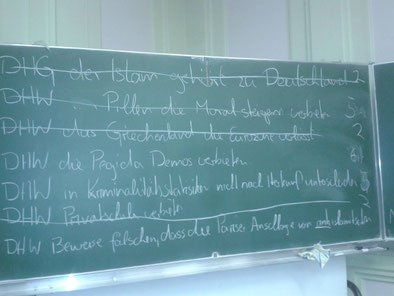 DHG der Islam gehört zu Deutschland 2
DHW Pillen die Moral steigern verbieten
DHW das Griechenland die Eurozone verlässt 2
DHW die Pegida Demos verbieten
DHW in Kriminalitätsstatistiken nicht nach Herkunft unterscheiden
DHW Privatschulen verbieten 2
DHW Beweise fälschen, dass die Pariser Anschläge von